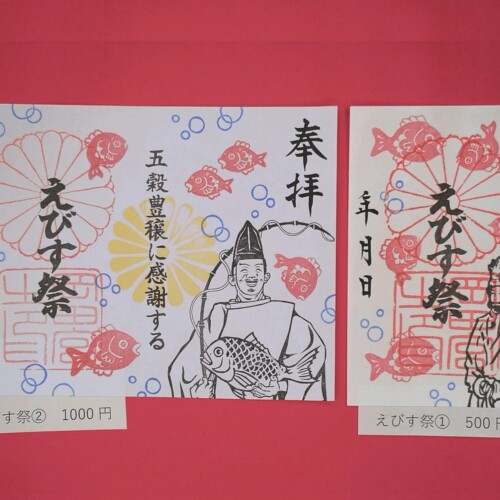 奉拝
五穀豊穣に感謝する
えびす祭
す祭② 1000円
えびす祭
年月日
えびす祭① 500円